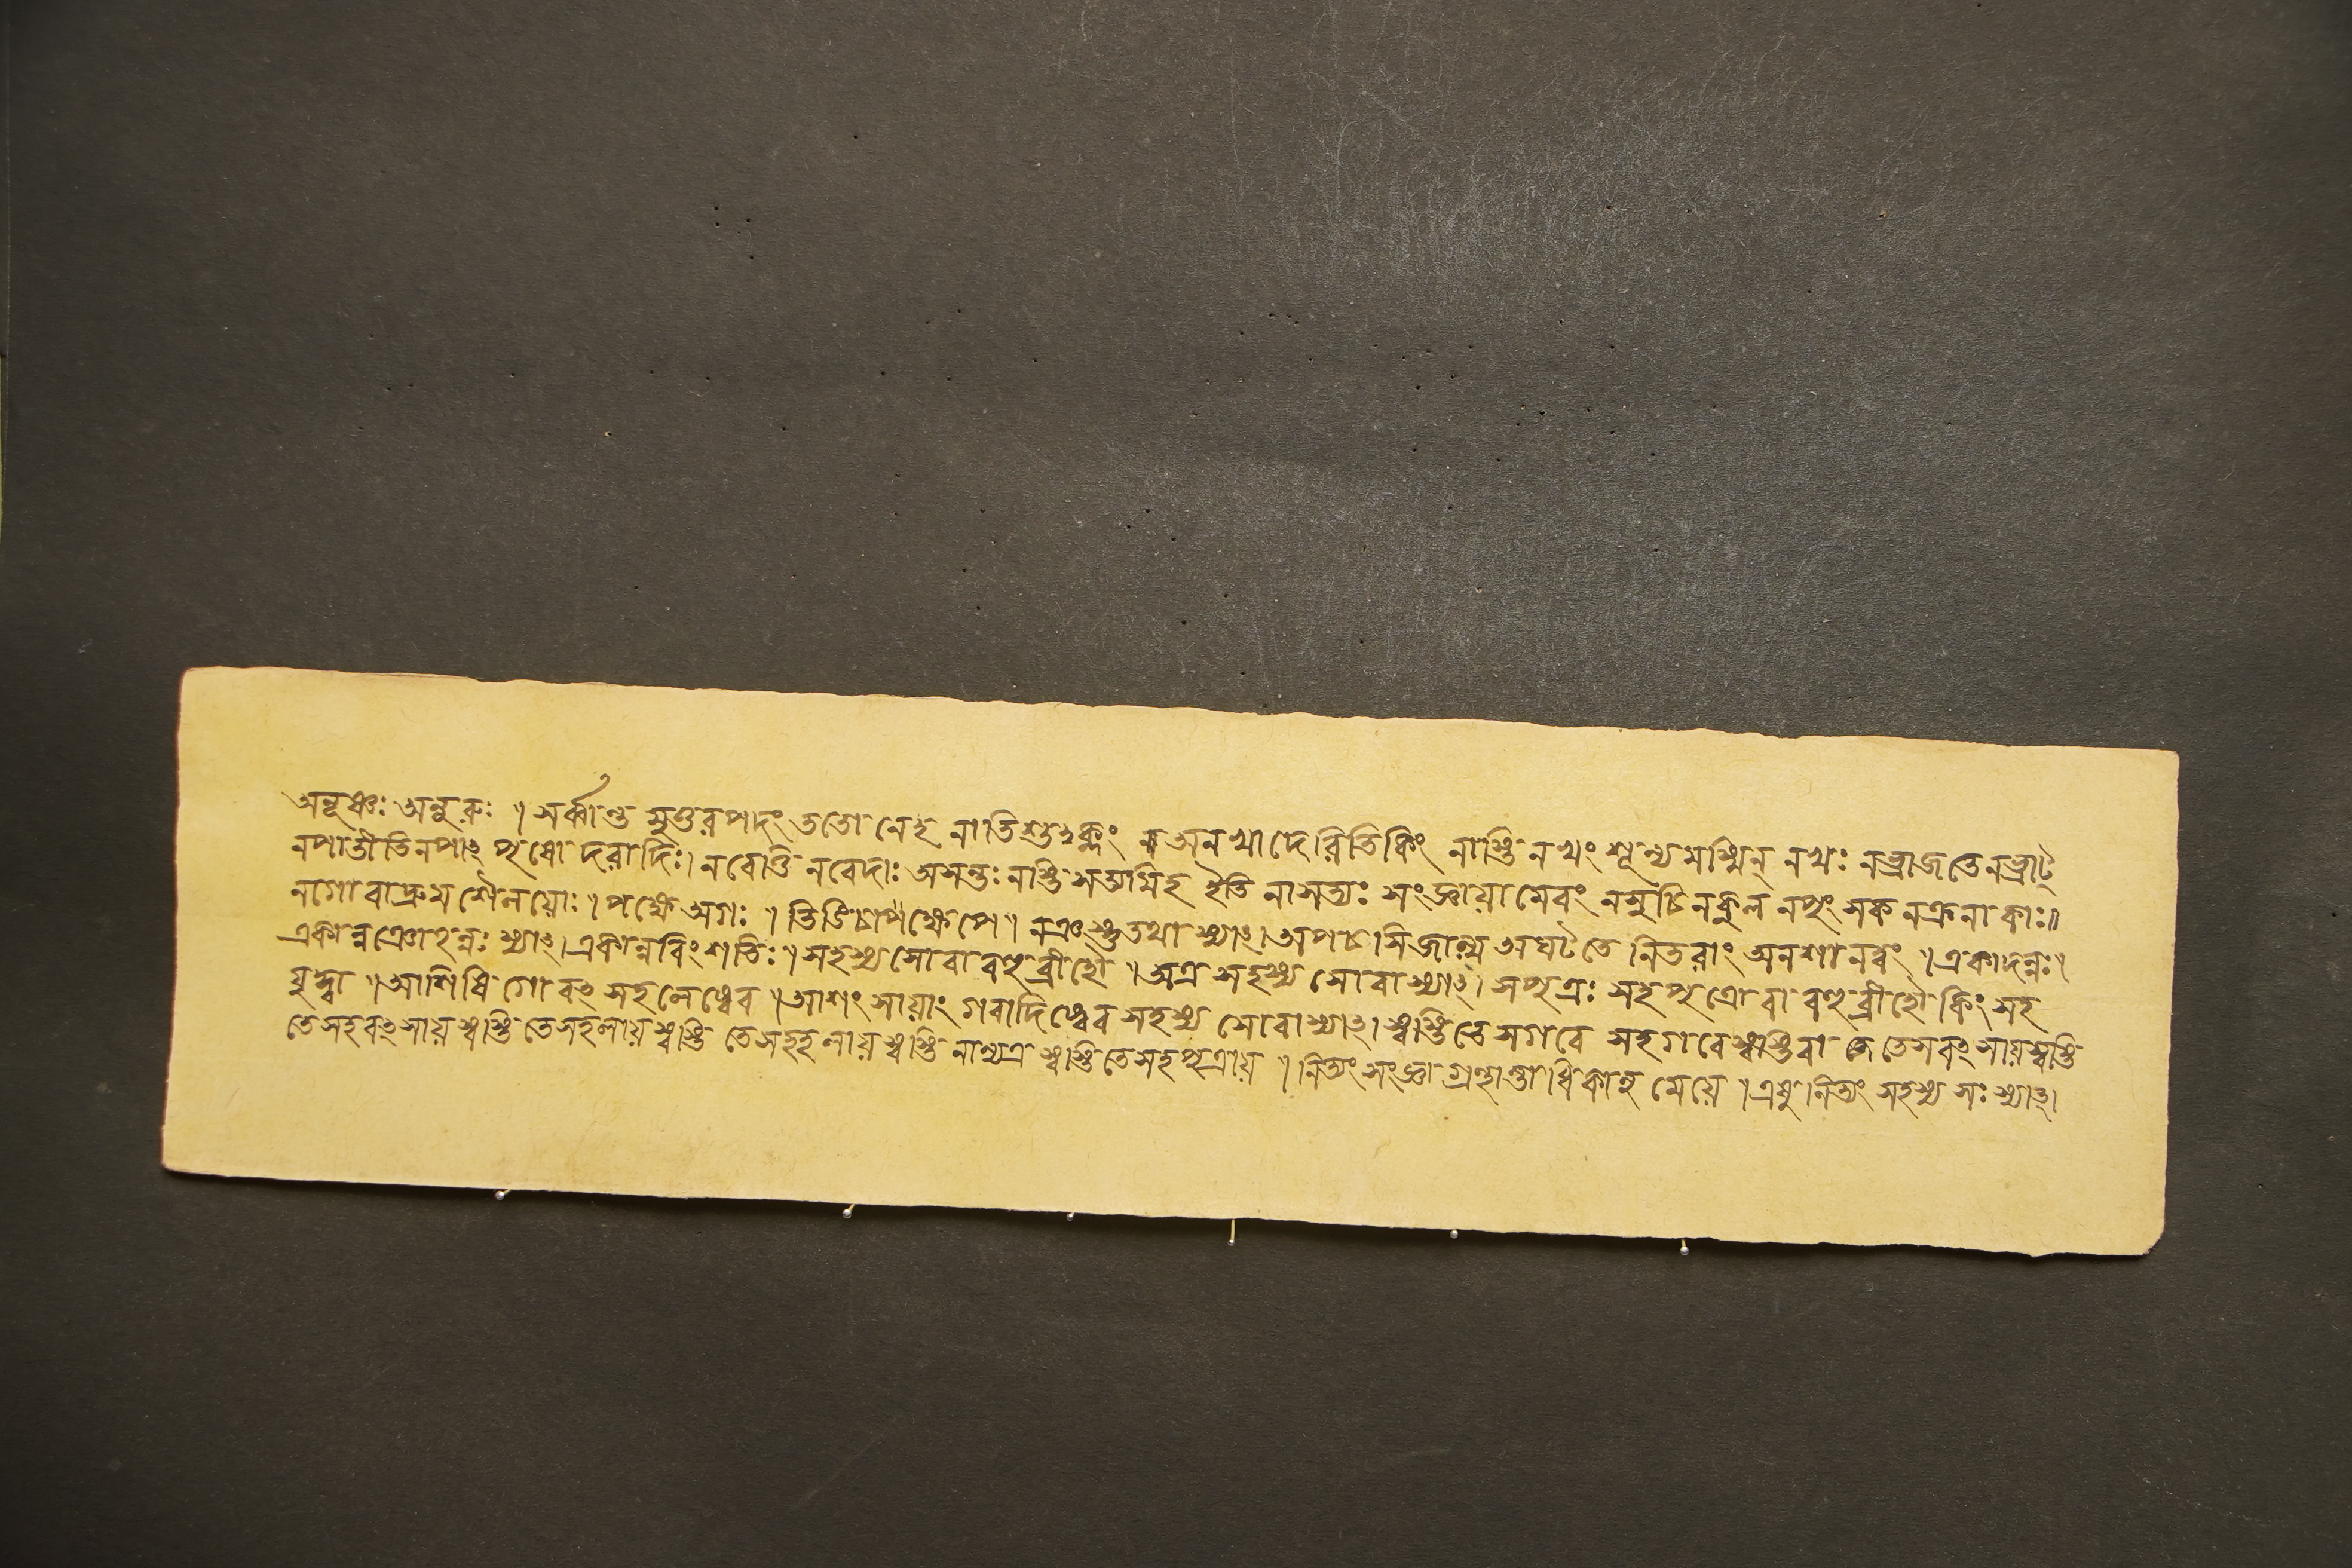 অনুষ্ণঃ অনূরুঃ । সর্ব্বান্ত মুত্তরপদং ততো নেহ নাতিশুক্লং অনখাদেরিতি কিং নাস্তি নখং শূন্যমস্মিন্ নখঃ নভ্রাজতে নভ্রাট্
নপাতীতি নপাৎ পৃষোদরাদিঃ। নবেত্তি নবেদাঃ অসন্তঃ নাস্তি সত্যমিহ ইতি নাসত্যঃ সংজ্ঞায়ামেবং নমুচি নকুল নপুং সক নক্র নাকাঃ॥
নগো বাদ্রুম শৈলয়োঃ । পক্ষে অগঃ । তিঙিচাপক্ষেপে । নঞস্তু তথা স্যাৎ। অপচসি জাল্ম অঘটতে নিতরাং অনশানত্বং । একাদন্নঃ।
একান্নঞোহন্নঃ স্যাৎ। একান্নবিংশতিঃ । সহস্য সো বা বহুব্রীহৌ । অত্র সহস্য সো বা স্যাৎ। সপুত্রঃ সহপুত্রো বা বহুব্রীহৌ কিং সহ
যুদ্ধা । আশিষি গোবৎসহলেষ্বেব । আশংসায়াং গবাদিষ্বেব সহস্য সো বা স্যাৎ। স্বস্তি তে সগবে সহগবে স্বস্তিবা তে সবৎসায় স্বস্তি
তে সহবৎসায় স্বস্তি তে সহলায় স্বস্তি তে সহহলায় স্বস্তি নান্যত্র স্বস্তি তে সহপুত্রায় । নিত্যং সংজ্ঞা গ্রন্থান্তাধিকানুমেয়ে । এষু নিত্যং সহস্য সঃ স্যাৎ।